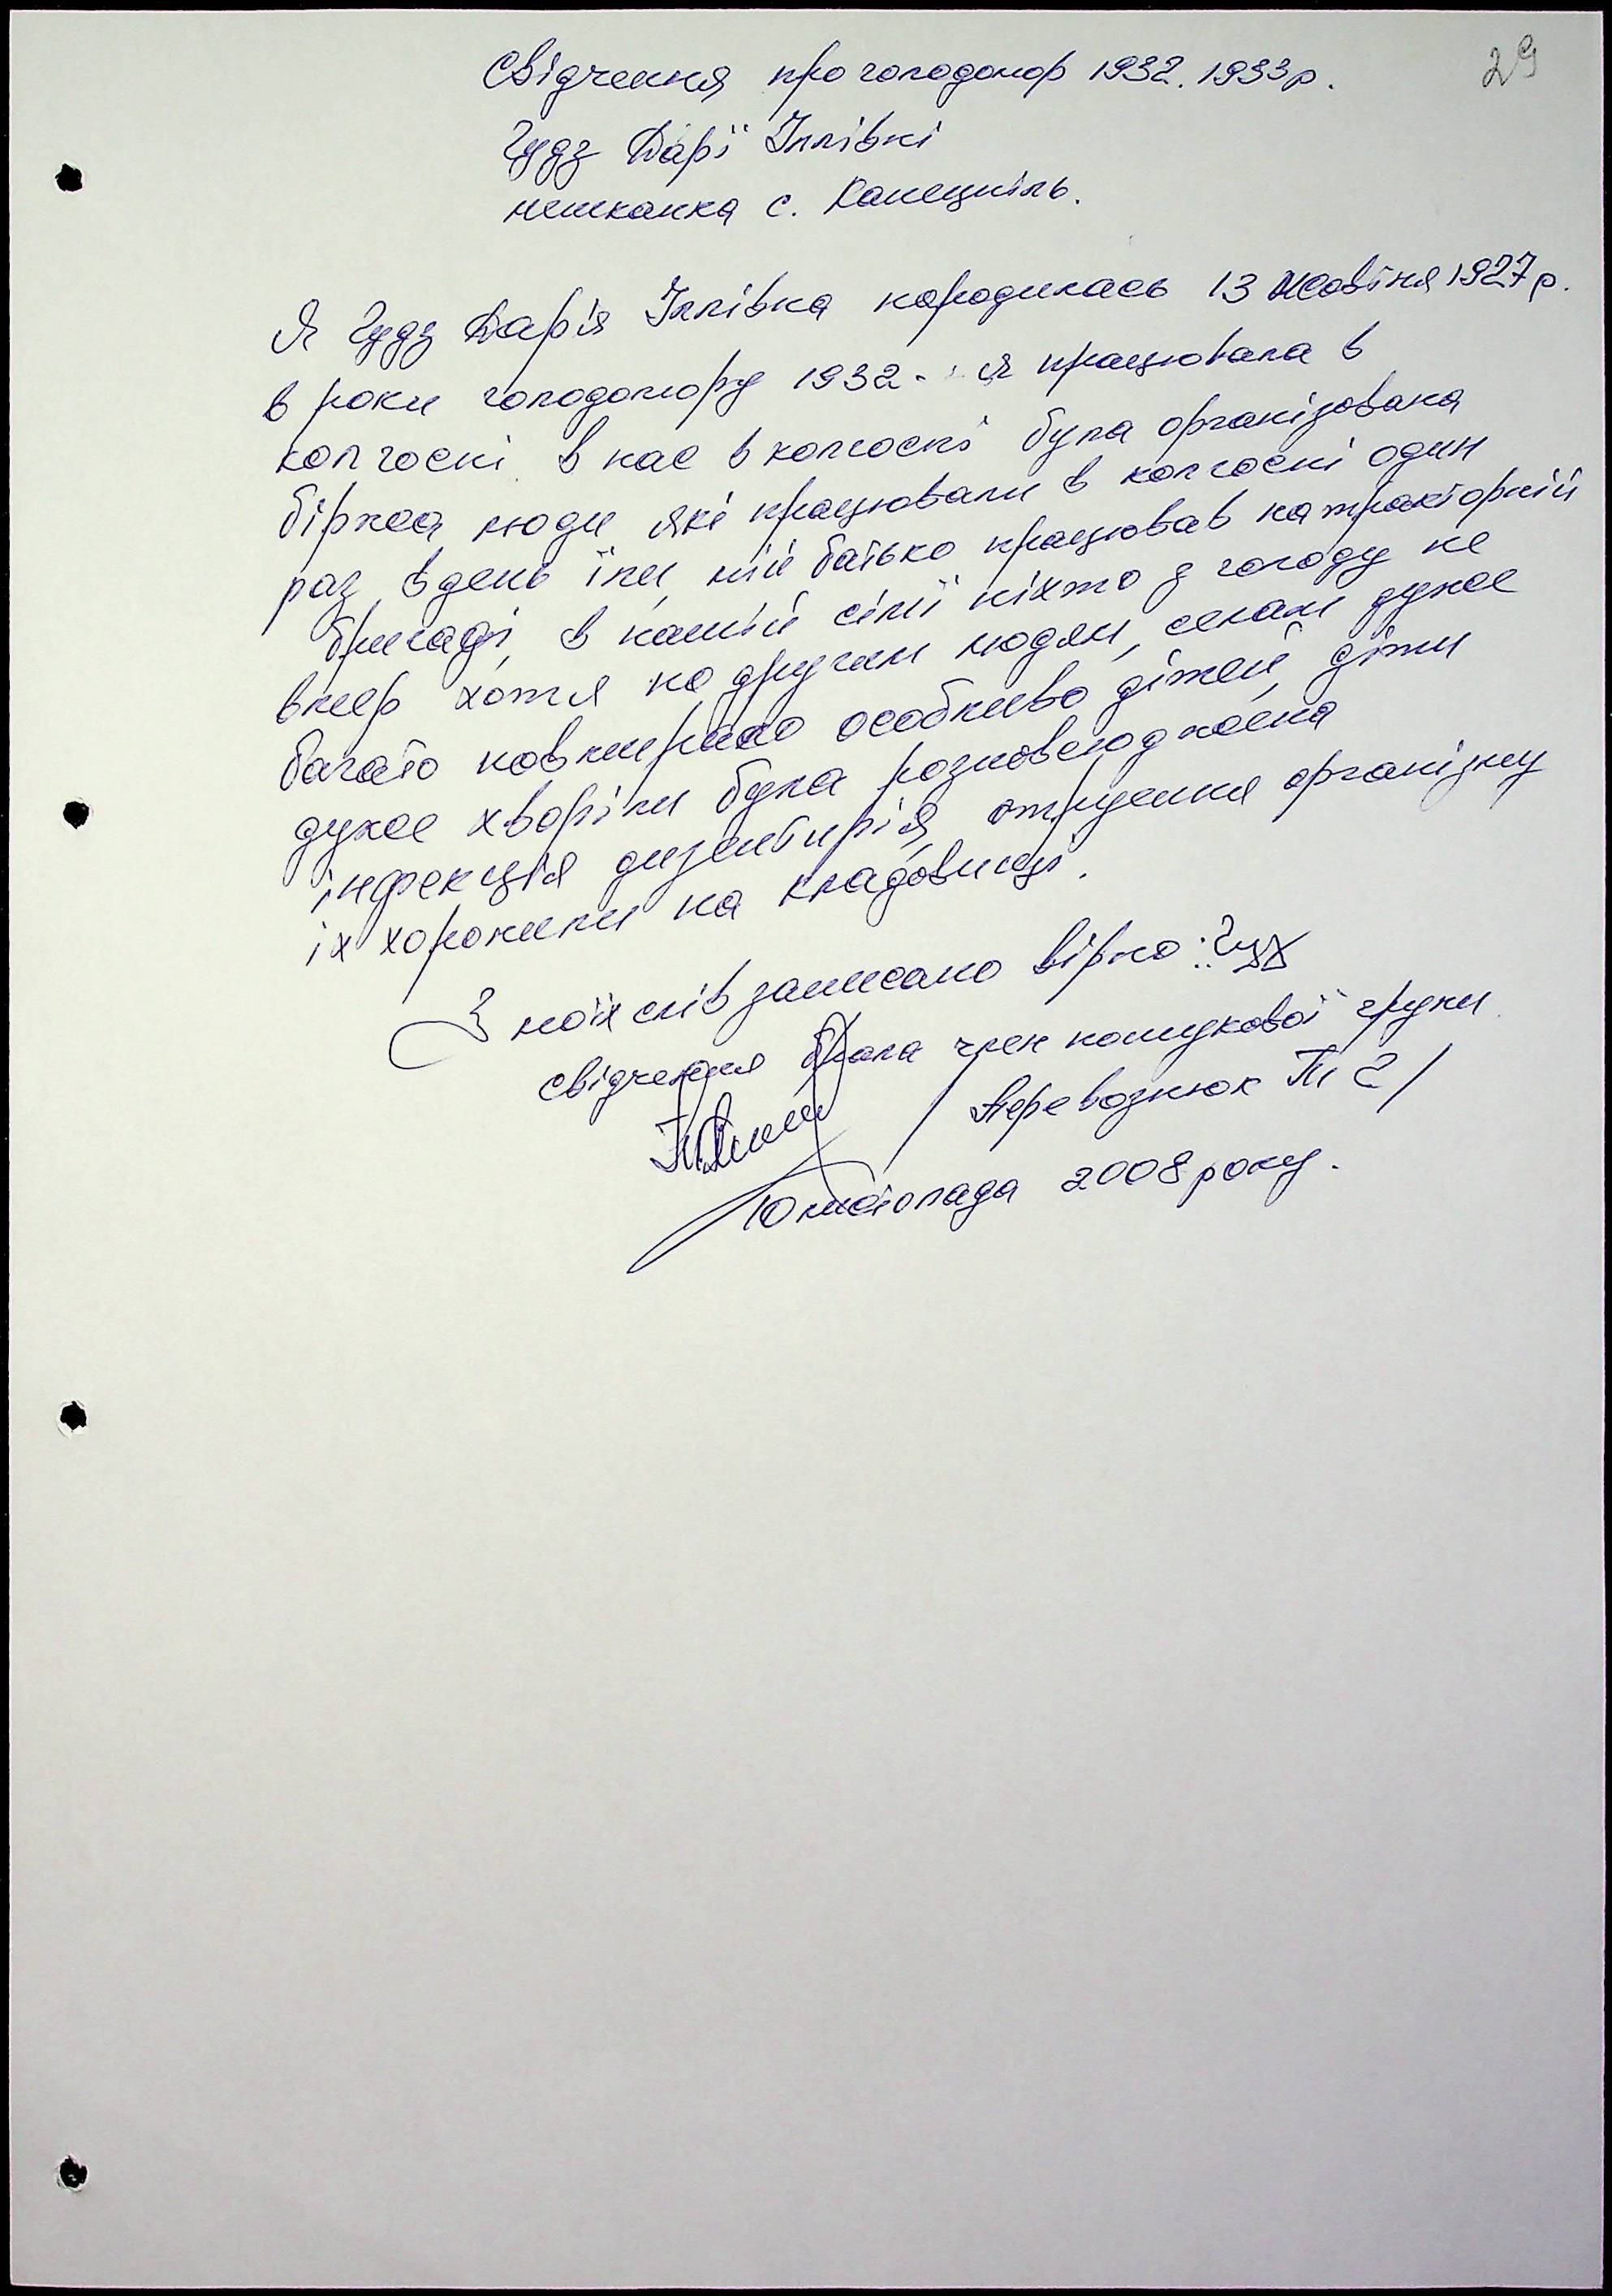 29
Свідчення про голодомор 1932. 1933р.
Гудз Дарії Іллівні
мешканка с. Канецпіль.
Я Гудз Дарія Іллівна народилась 13 Жовтня 1927 р.
в роки голодомору 1932 - я працювала в
колгоспі в нас в колгоспі була організована
біржа люди які працювали в колгоспі один
раз в день їли, мій батько працював на тракторній
бригаді, в нашій сімї ніхто з голоду не
вмер хотя по другим людям, селам дуже
багато повмирало особливо дітей, діти
дуже хворіли була розповсюджена
інфекція дизентирія, отруення організму
іх хоронили на кладовищі.
З моїх слів записано вірно: Гудз
свідчення брала член пошукової групи
/ Перевознюк Т. Г /
10 листопада 2008 року.